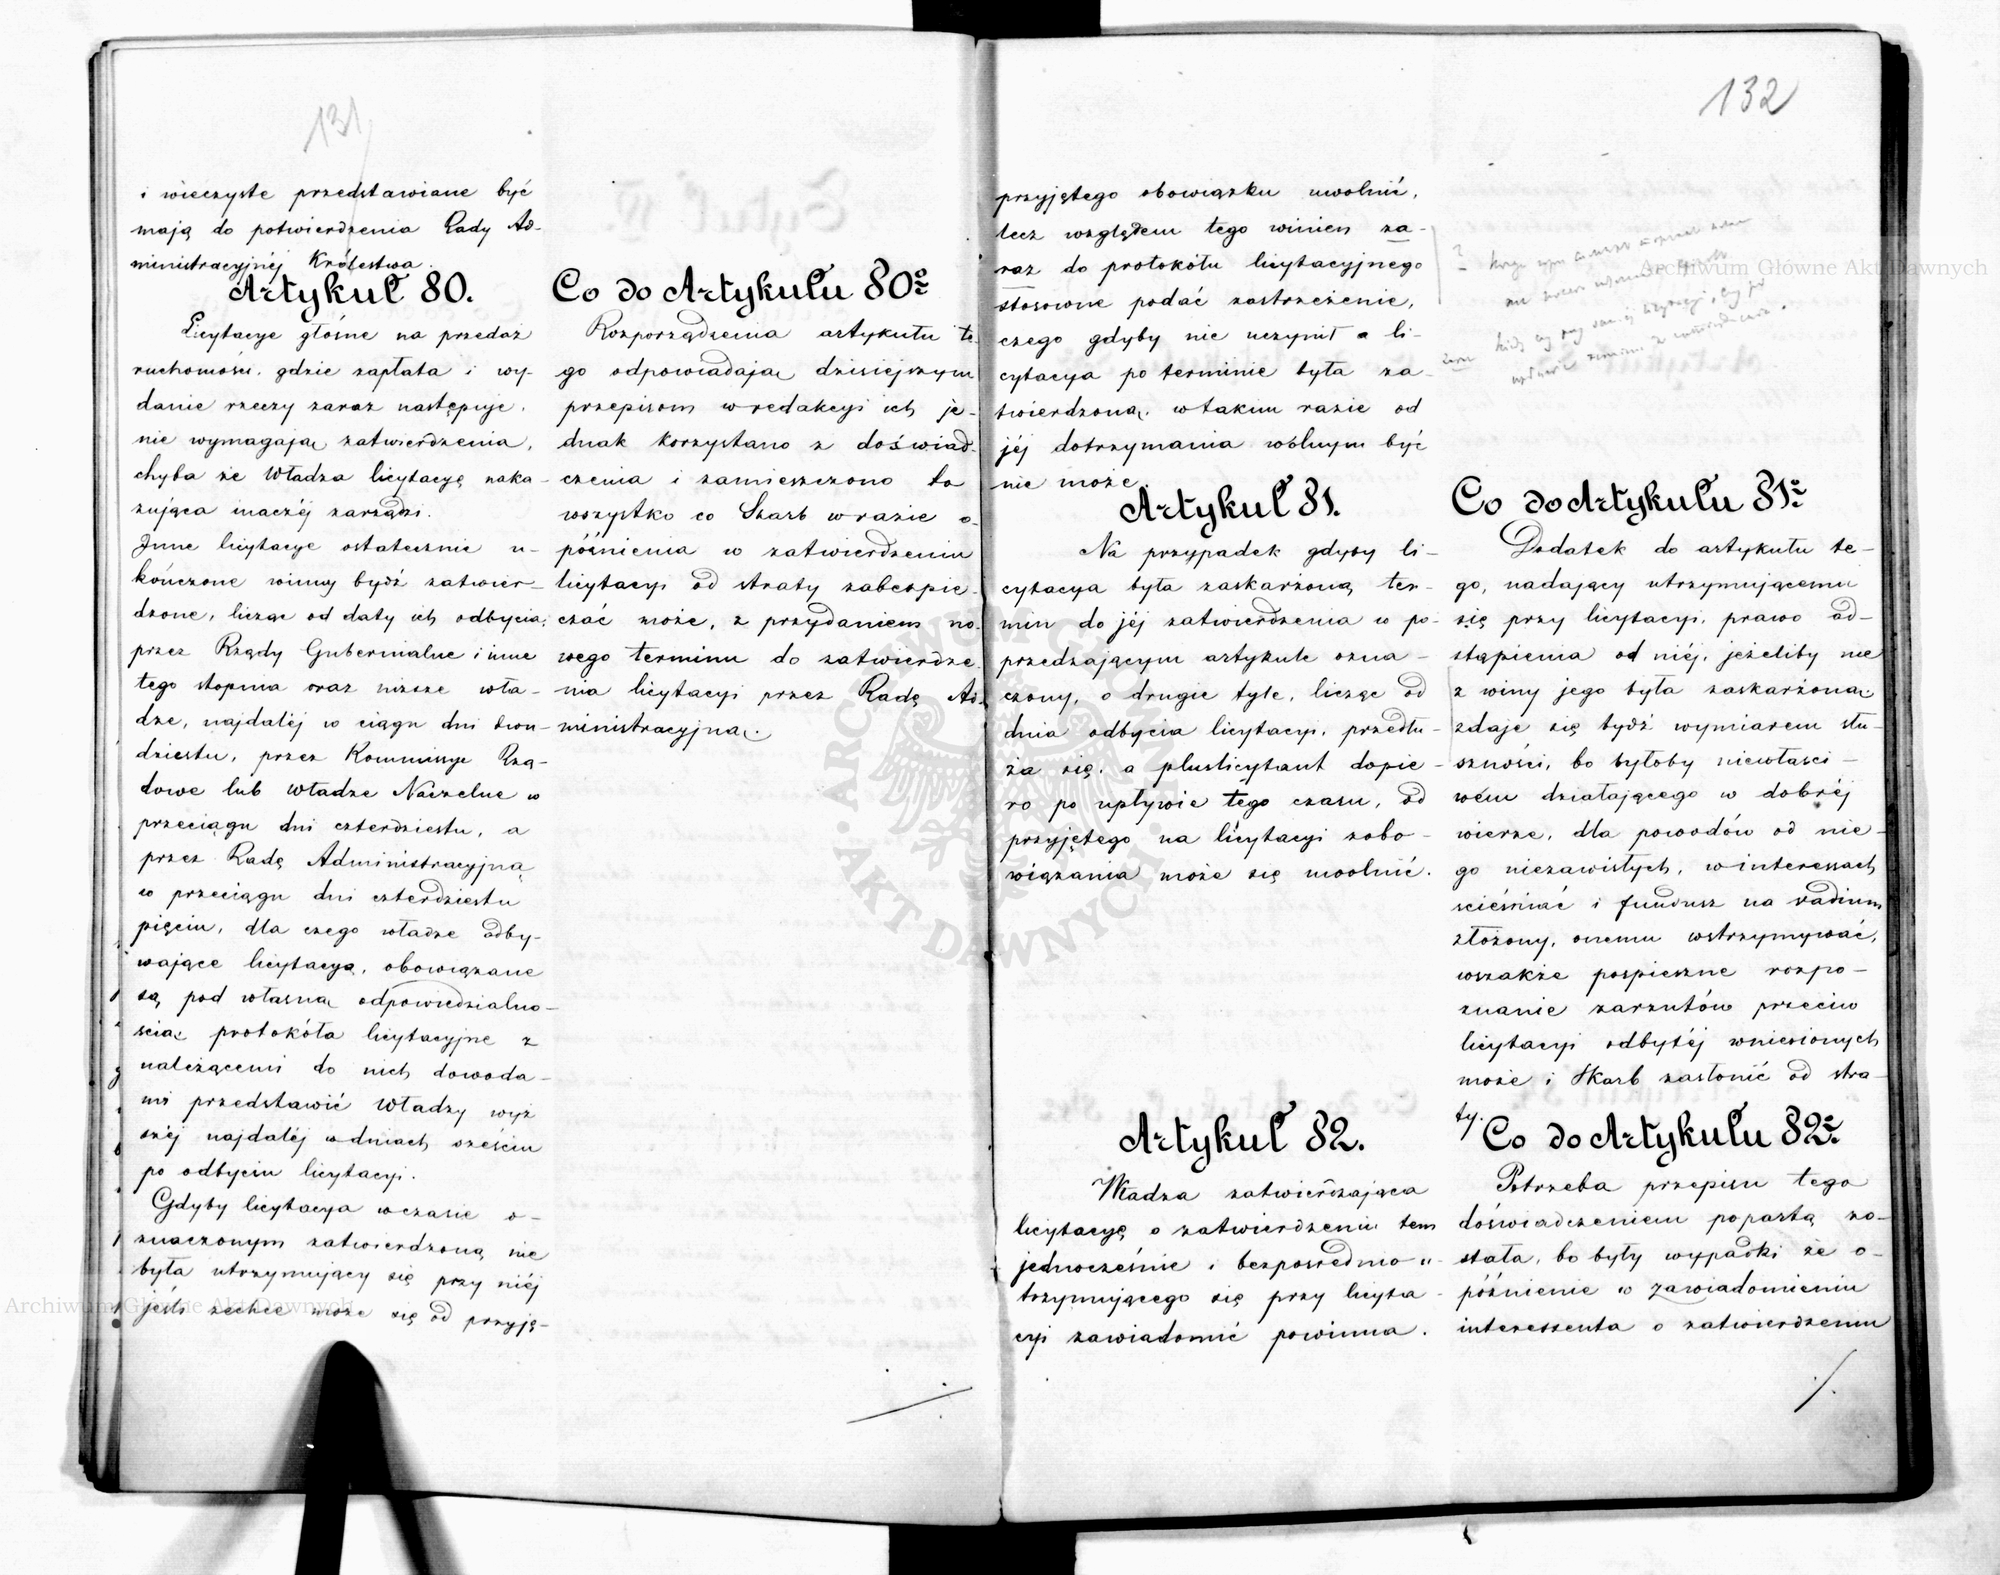 131
i wieczyste przedstawiane być
mają do potwierdzenia Rady Ad-
ministracyjnéj Królestwa.
Artykuł 80.
Licytacye głośne na przedaż
ruchomości, gdzie zapłata i wy-
danie rzeczy zaraz następuje,
nie wymagają zatwierdzenia,
chyba że Władza licytacyę naka-
zująca inaczéj zarządzi.
Inne licytacye ostatecznie u-
kończone winny bydź zatwier-
dzone, licząc od daty ich odbycia;
przez Rządy Gubernialne i inne
tego stopnia oraz niższe wła-
dze, najdaléj w ciągu dni dwu-
dziestu, przez Kommissye Rzą-
dowe lub Władze Naczelne w
przeciągu dni czterdziestu, a
przez Radę Administracyjną
w przeciągu dni czterdziestu
pięciu, dla czego władze odby-
wające licytacyą, obowiązane
są pod własną odpowiedzialno-
ścią protokóła licytacyjne z
należącemi do nich dowoda-
mi przedstawić Władzy wyż
széj najdaléj w dniach sześciu
po odbyciu licytacyi.
Gdyby licytacya w czasie o-
znaczonym zatwierdzoną nie
była utrzymujący się przy niéj
jeśli zechce może się od przyję-
Co do Artykułu 80º
Rozporządzenia artykułu te-
go odpowiadają dzisiejszym
przepisom w redakcyi ich je-
dnak korzystano z doświad-
czenia i zamieszczono to
wszystko co Skarb w razie o-
późnienia w zatwierdzeniu
licytacyi od straty zabezpie-
czać może, z przydaniem no-
wego terminu do zatwierdze-
nia licytacyi przez Radę Ad-
ministracyjną.
132
przyjętego obowiązku uwolnić,
lecz względem tego winien za-
raz do protokółu licytacyjnego
stosowne podać zastrzeżenie,
czego gdyby nie uczynił a li-
cytacya po terminie była za-
twierdzoną, w takim razie od
jéj dotrzymania wolnym być
nie może.
Artykuł 81.
Na przypadek gdyby li-
cytacya była zaskarżoną ter-
min do jéj zatwierdzenia w po-
przedzającym artykule ozna-
czony, o drugie tyle, licząc od
dnia odbycia licytacyi, przedłu-
ża się, a pluslicytant dopie-
ro po upływie tego czasu, od
przyjętego na licytacyi zobo-
wiązania może się uwolnić.
Artykuł 82.
Władza zatwierdzająca
licytacyę o zatwierdzeniu tem
jednocześnie i bezpośrednio u-
trzymującego się przy licyta-
cyi zawiadomić powinna.
Co do Artykułu 81º
Dodatek do artykułu te-
go, nadający utrzymującemu
się przy licytacyi, prawo od-
stąpienia od niéj, jeżeliby nie
z winy jego była zaskarżoną
zdaje się bydź wymiarem słu-
szności, bo byłoby niewłaści-
wém działającego w dobréj
wierze, dla powodów od nie-
go niezawisłych, w interessach
ścieśniać i fundusz na vadium
złożony, onemu wstrzymywać,
wszakże pospieszne rozpo-
znanie zarzutów przeciw
licytacyi odbytéj wniesionych
może i Skarb zasłonić od stra-
ty.
Co do Artykułu 82º
Potrzeba przepisu tego
doświadczeniem popartą zo-
stała, bo były wypadki że o-
późnienie w zawiadomieniu
interessenta o zatwierdzeniu
Archiwum Główne Akt Dawnych
Archiwum Główne Akt Dawnych